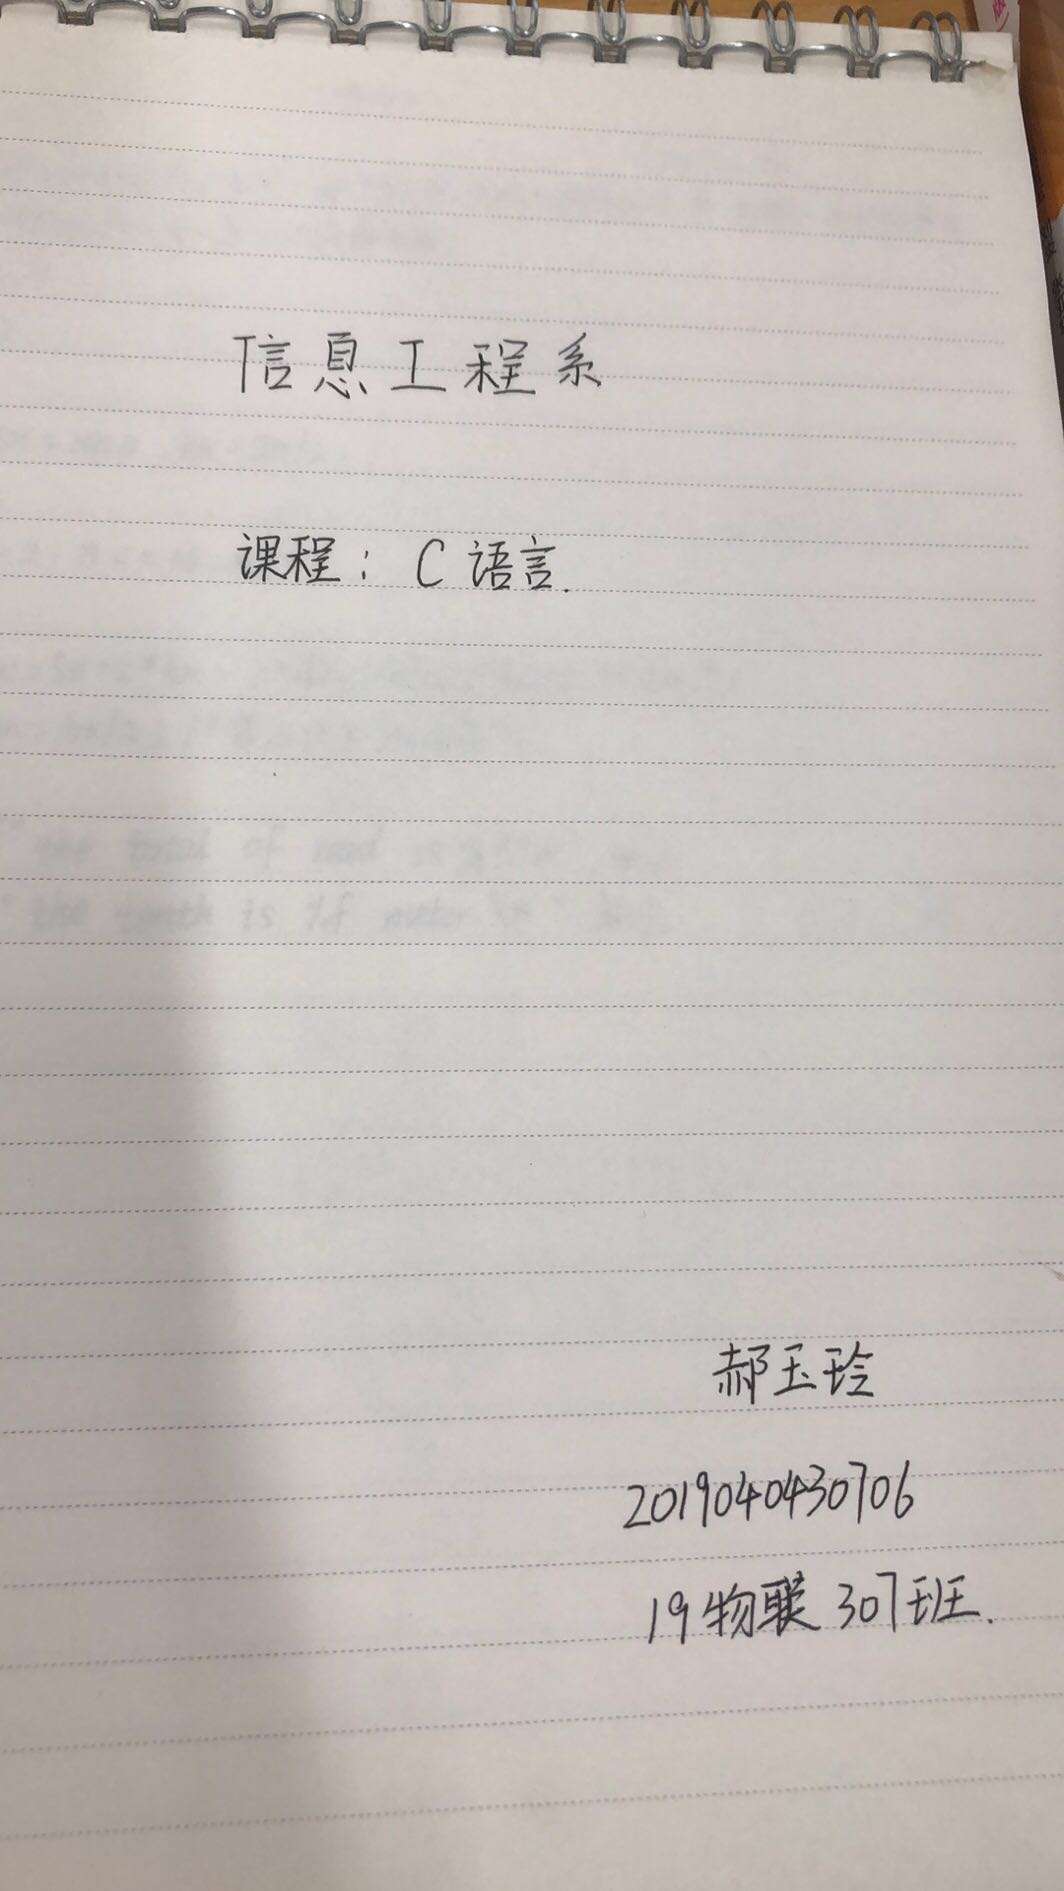 信息工程系
课程：C语言.
郝玉玲
2019040430706
19物联307班.